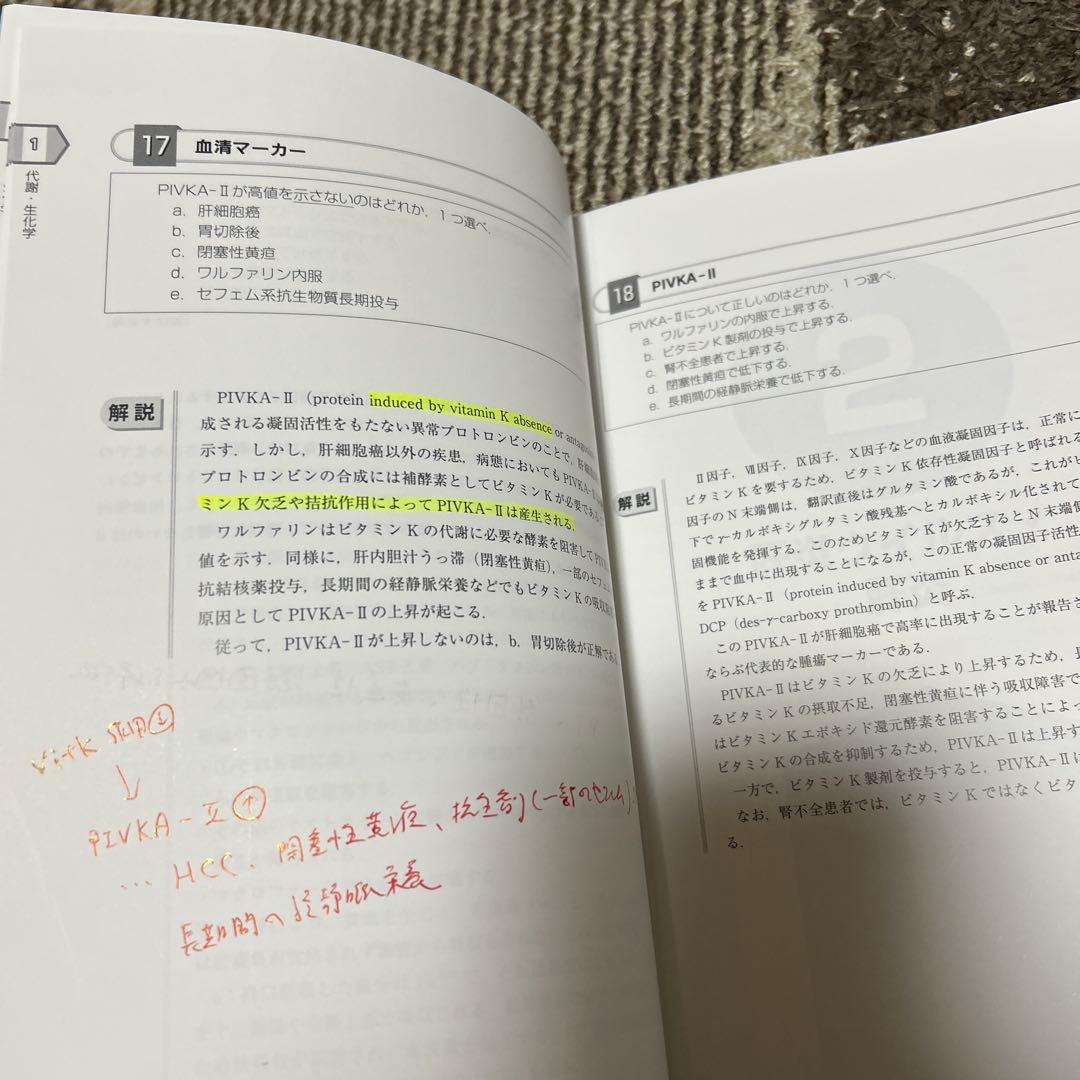 1
代謝・生化学
17 血清マーカー
PIVKA-Ⅱが高値を示さないのはどれか．1つ選べ．
a．肝細胞癌
b．胃切除後
c．閉塞性黄疸
d．ワルファリン内服
e．セフェム系抗生物質長期投与
解説
PIVKA-Ⅱ（protein induced by vitamin K absence or antagon
成される凝固活性をもたない異常プロトロンビンのことで，肝細胞
示す．しかし，肝細胞癌以外の疾患，病態においてもPIVKA-Ⅱ
プロトロンビンの合成には補酵素としてビタミンKが必要である
ミンK欠乏や拮抗作用によってPIVKA-Ⅱは産生される．
ワルファリンはビタミンKの代謝に必要な酵素を阻害してPI
値を示す．同様に，肝内胆汁うっ滞（閉塞性黄疸），一部のセフェ
抗結核薬投与，長期間の経静脈栄養などでもビタミンKの吸収
原因としてPIVKA-Ⅱの上昇が起こる．
従って，PIVKA-Ⅱが上昇しないのは，b．胃切除後が正解であ
↓
PIVKA-Ⅱ↑
… HCC．閉塞性黄疸、抗生剤(一部のセフェム)
長期間の経静脈栄養
18 PIVKA-Ⅱ
PIVKA-Ⅱについて正しいのはどれか．1つ選べ．
a．ワルファリンの内服で上昇する．
b．ビタミンK製剤の投与で上昇する．
c．腎不全患者で上昇する．
d．閉塞性黄疸で低下する．
e．長期間の経静脈栄養で低下する．
解説
Ⅱ因子，Ⅶ因子，Ⅸ因子，Ⅹ因子などの血液凝固因子は，正常に
ビタミンKを要するため，ビタミンK依存性凝固因子と呼ばれる
因子のN末端側は，翻訳直後はグルタミン酸であるが，これがビ
下でγ-カルボキシグルタミン酸残基へとカルボキシル化されて
固機能を発揮する．このためビタミンKが欠乏するとN末端側
ままで血中に出現することになるが，この正常の凝固因子活性
をPIVKA-Ⅱ（protein induced by vitamin K absence or anta
DCP（des-γ-carboxy prothrombin）と呼ぶ．
このPIVKA-Ⅱが肝細胞癌で高率に出現することが報告さ
ならぶ代表的な腫瘍マーカーである．
PIVKA-ⅡはビタミンKの欠乏により上昇するため，長
るビタミンKの摂取不足，閉塞性黄疸に伴う吸収障害で
はビタミンKエポキシド還元酵素を阻害することによっ
ビタミンKの合成を抑制するため，PIVKA-Ⅱは上昇す
一方で，ビタミンK製剤を投与すると，PIVKA-Ⅱは
なお，腎不全患者では，ビタミンKではなくビタ
る．